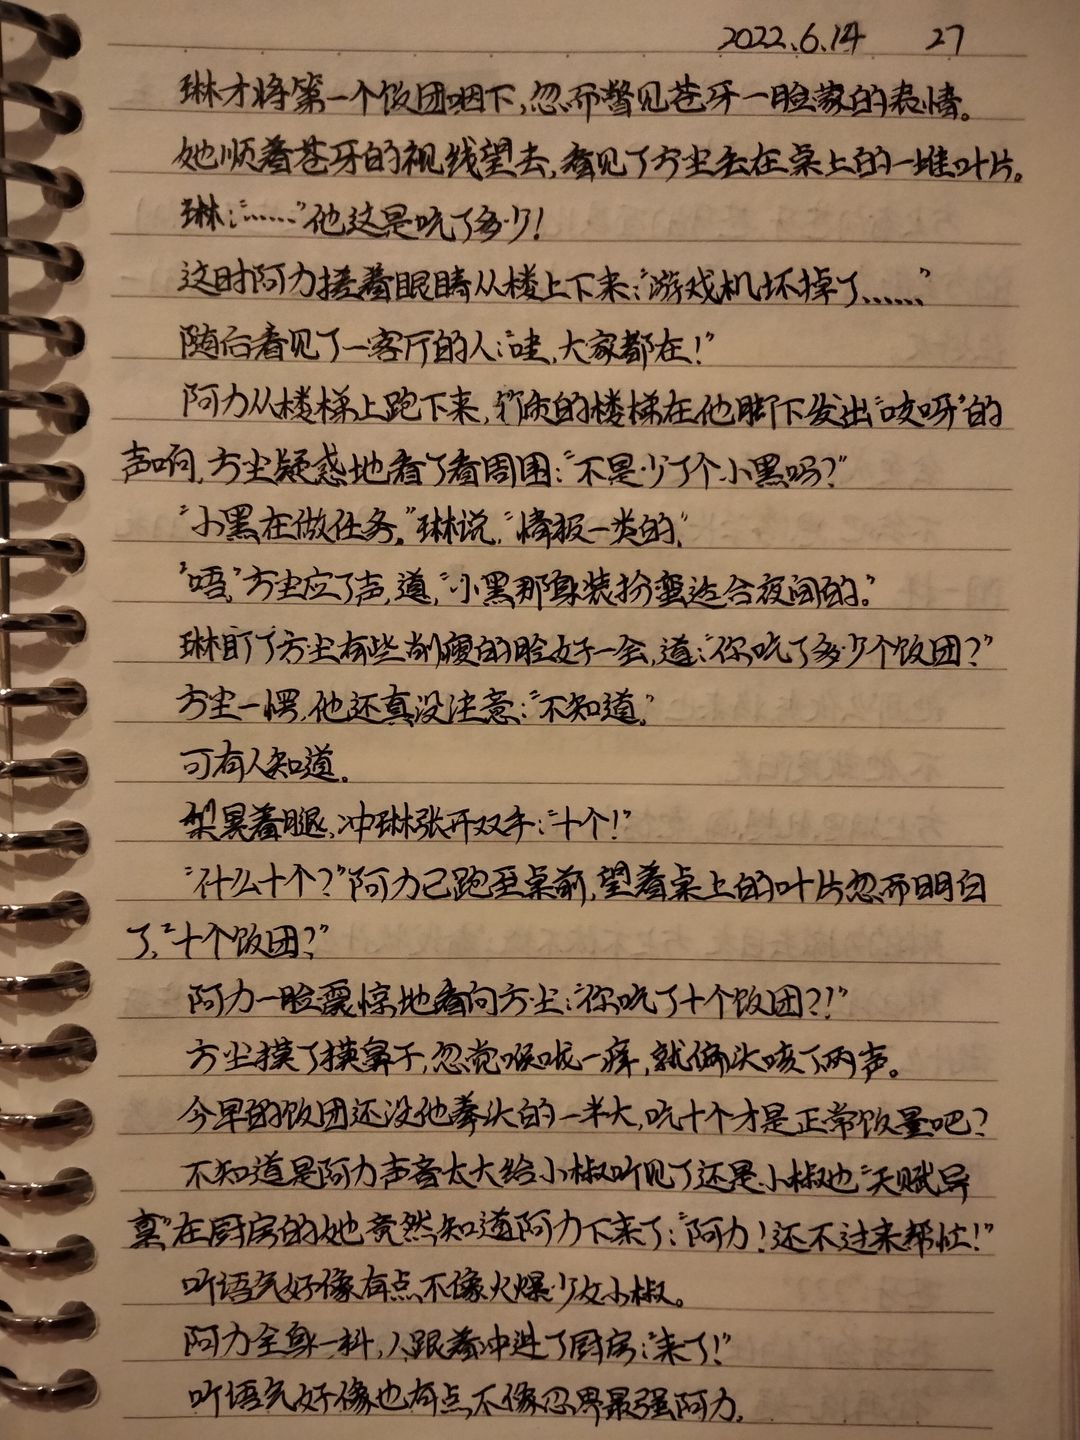 2022.6.14 27
琳才将第一个饭团咽下,忽而瞥见苍牙一脸蒙的表情。
她顺着苍牙的视线望去,看见了方尘丢在桌上的一堆叶片。
琳:“……”他这是吃了多少!
这时阿力揉着眼睛从楼上下来:“游戏机坏掉了……”
随后看见了一客厅的人:“哇,大家都在!”
阿力从楼梯上跑下来,竹质的楼梯在他脚下发出“吱呀”的
声响,方尘疑惑地看了看周围:“不是少了个小黑吗?”
“小黑在做任务。”琳说,“情报一类的。”
“唔,”方尘应了声,道,“小黑那身装扮蛮适合夜间的。”
琳盯了方尘有些削瘦的脸好一会,道:“你吃了多少个饭团?”
方尘一愣,他还真没注意:“不知道。”
可有人知道。
梨晃着腿,冲琳张开双手:“十个!”
“什么十个?”阿力已跑至桌前,望着桌上的叶片忽而明白
了,“十个饭团?”
阿力一脸震惊地看向方尘:“你吃了十个饭团?!”
方尘摸了摸鼻子,忽觉喉咙一痒,就偏头咳了两声。
今早的饭团还没他拳头的一半大,吃十个才是正常饭量吧?
不知道是阿力声音太大给小椒听见了还是小椒也“天赋异
禀”在厨房的她竟然知道阿力下来了:“阿力!还不过来帮忙!”
听语气好像有点不像火爆少女小椒。
阿力全身一抖,人跟着冲进了厨房:“来了!”
听语气好像也有点不像忍界最强阿力。